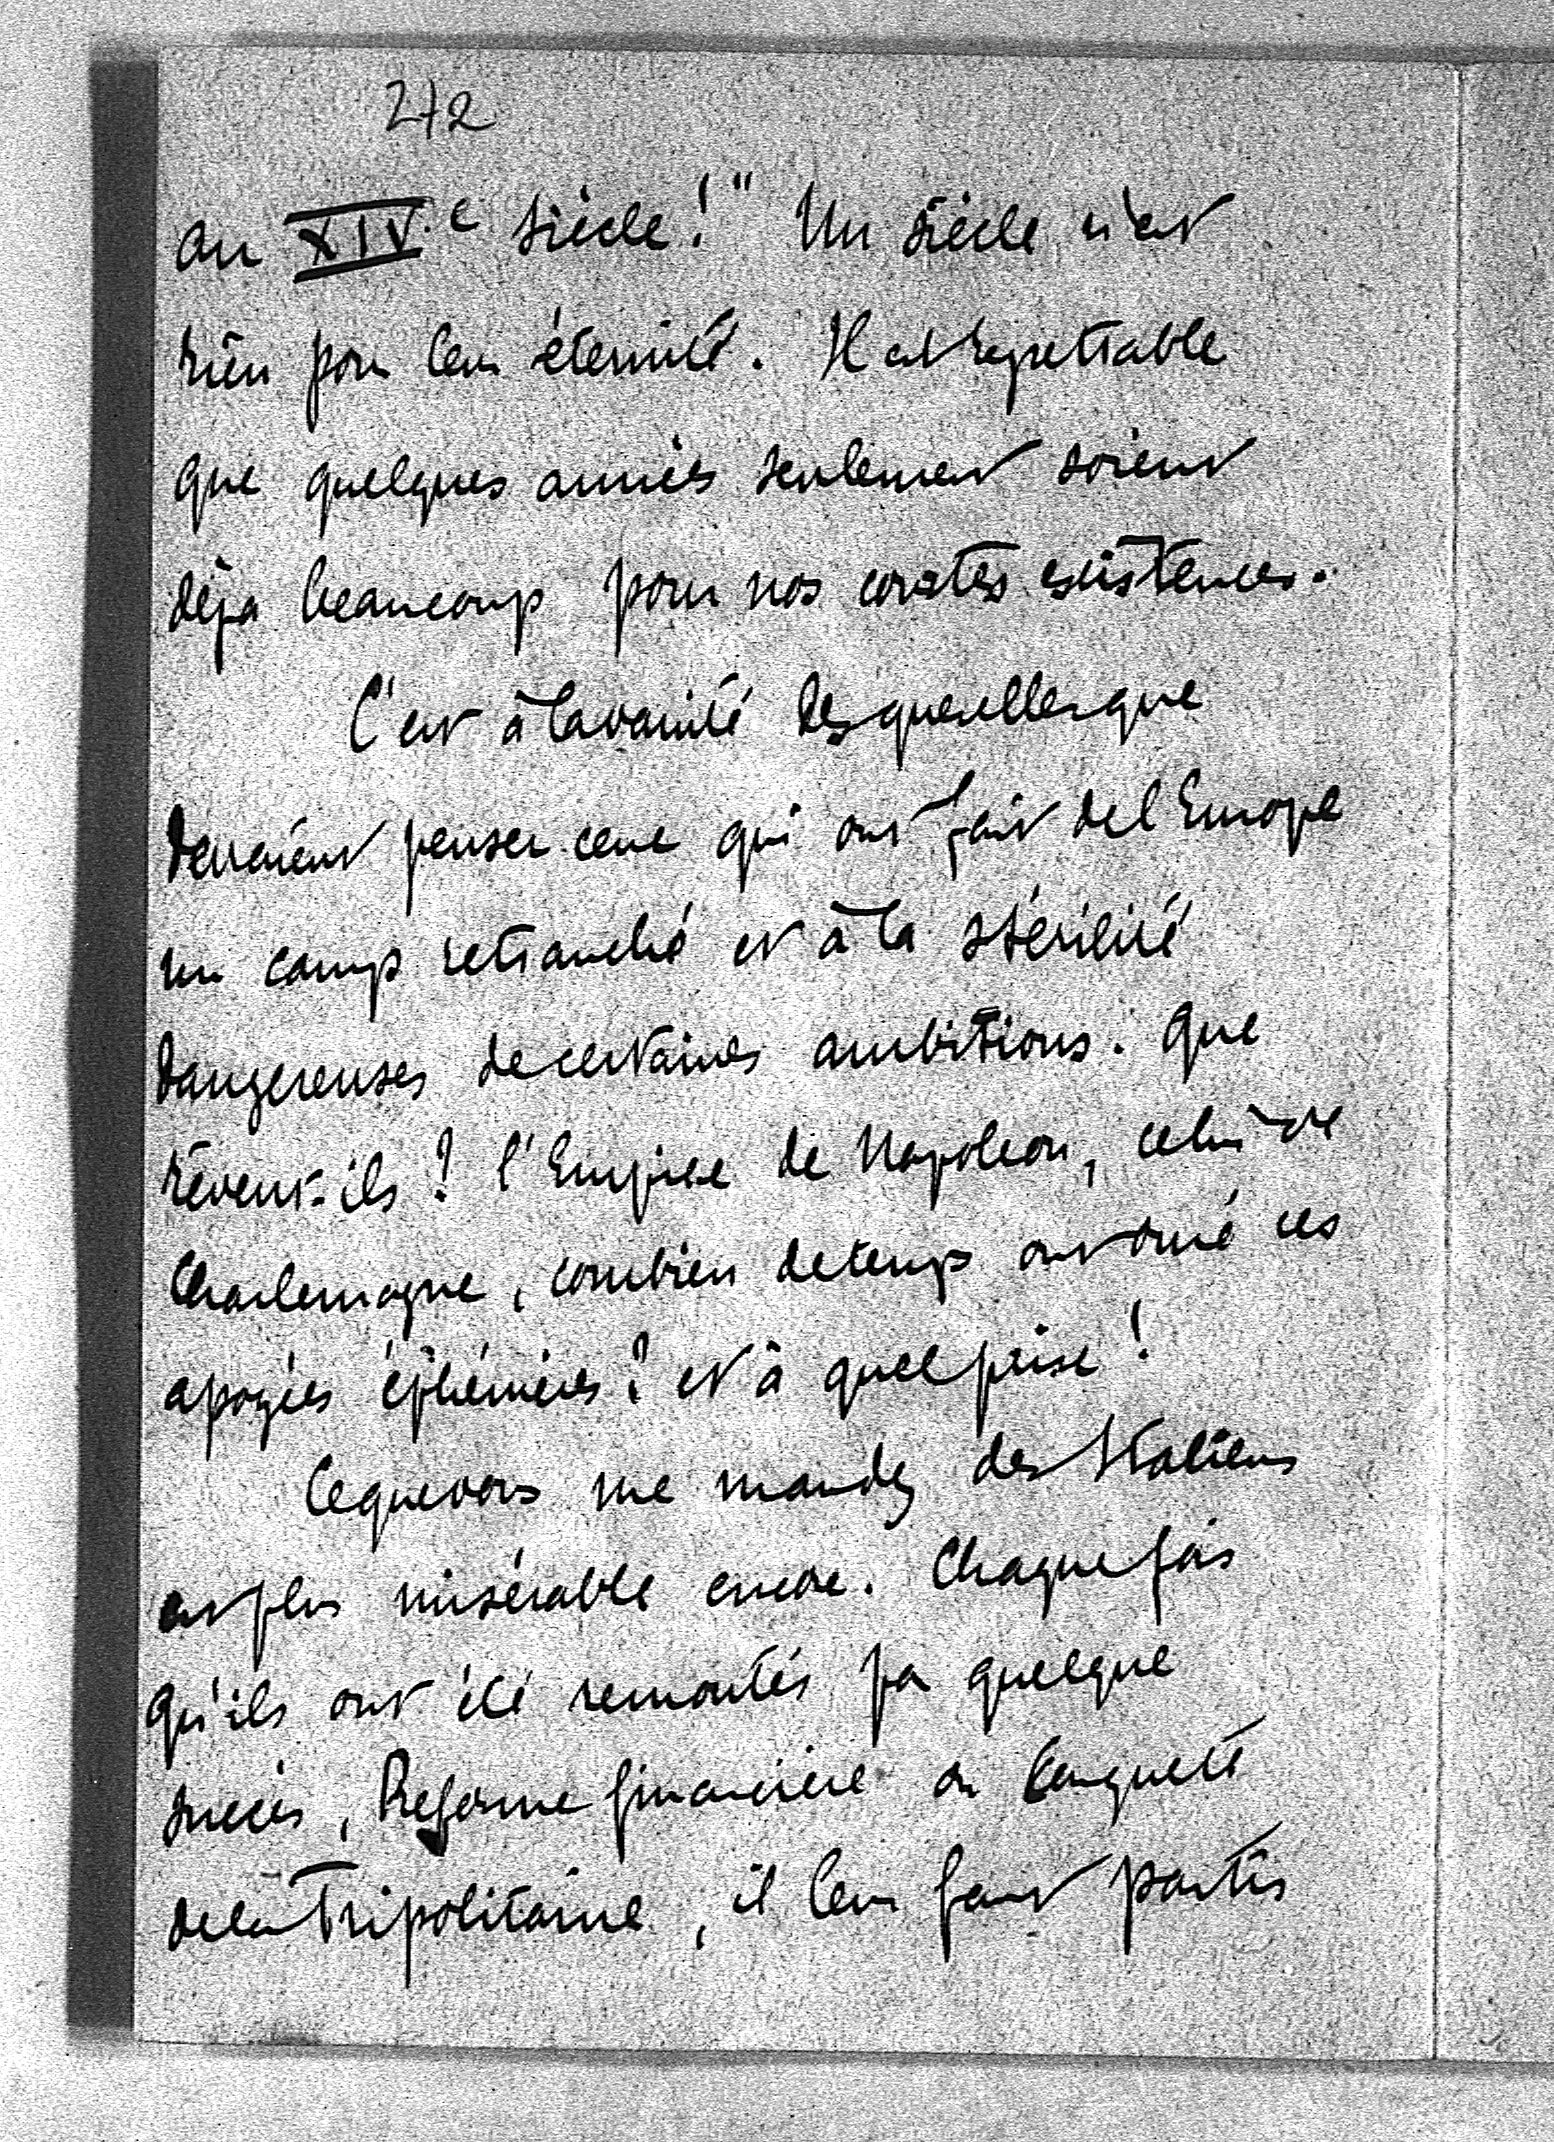 272
au XIV.e siècle!" Un siècle n'est
rien pour leur éternité. Il est regrettable
que quelques années seulement soient
déjà beaucoup pour nos courtes existences.
C'est à la vanité des querelles que
devraient penser ceux qui ont fait de l'Europe
un camp retranché et à la stérilité
dangereuses de certaines ambitions. Que
rêvent-ils? l'Empire de Napoleon, celui de
Charlemagne, combien de temps ont duré ces
apogées éphémères? et à quel prix!
Ce que vous me mandez des Italiens
est plus misérable encore. Chaque fois
qu'ils ont été remontés par quelque
succès, Reforme financière ou Conquête
de la Tripolitaine, il leur faut partir